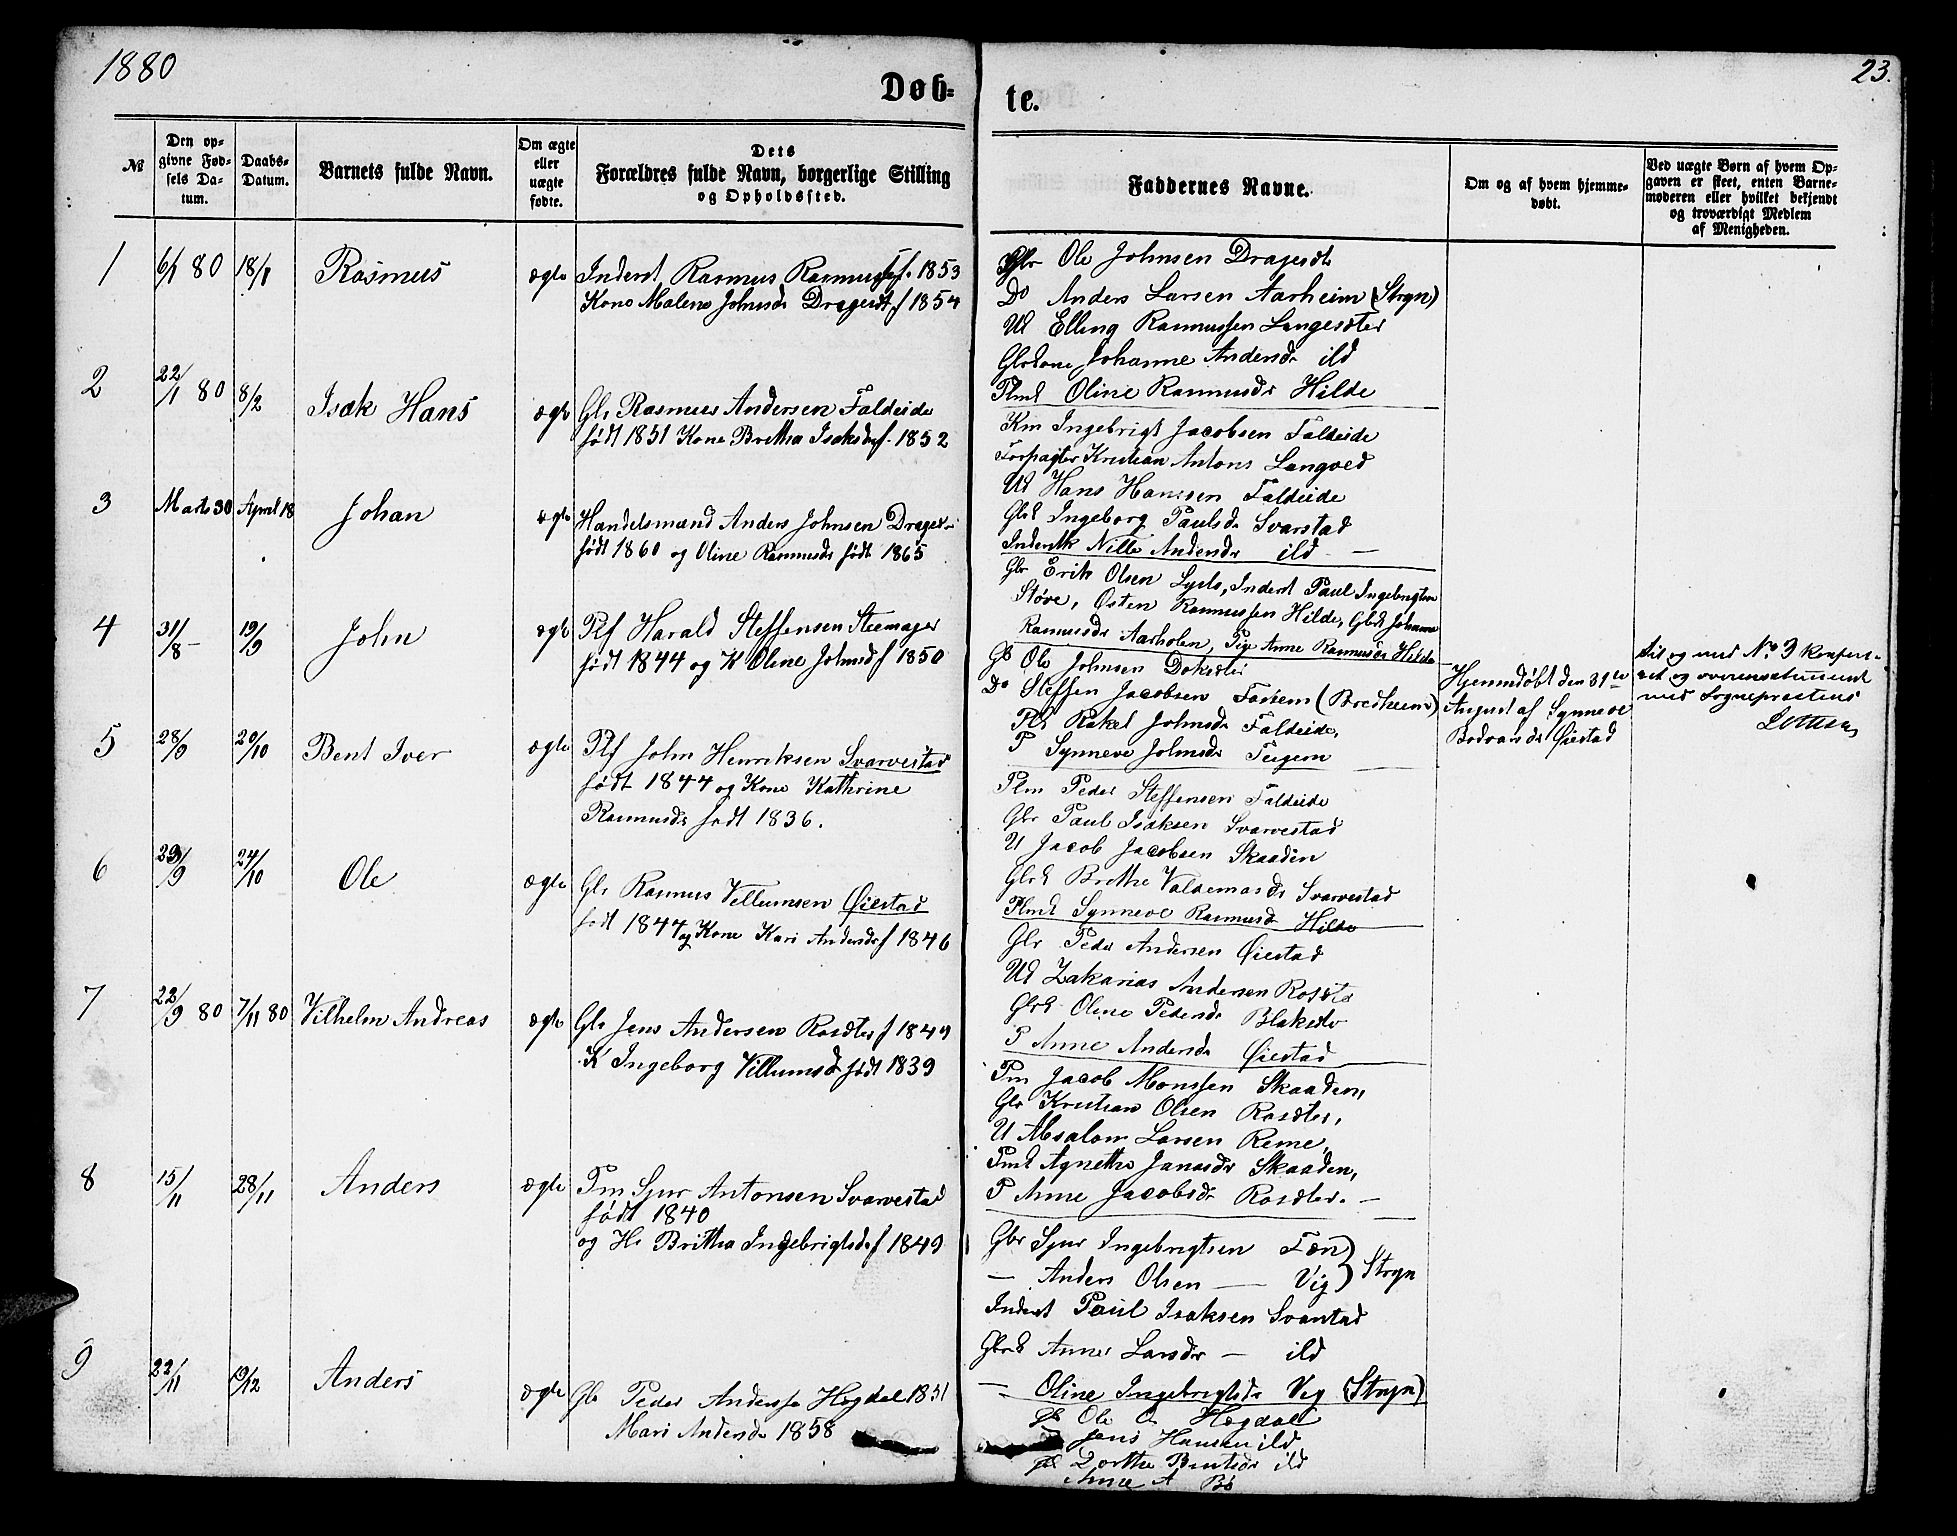 1880
23.
Døb=
te.
№
Den op-
givne Fød-
sels Da-
tum.
Daabs-
Datum.
Barnets fulde Navn.
Om ægte
eller
uægte
fødte.
Dets
Forældres fulde Navn, borgerlige Stilling
og Opholdssted.
Faddernes Navne.
Om og af hvem hjemme-
døbt.
Ved uægte Børn af hvem Op-
gaven er skeet, enten Barne-
moderen eller hvilket bekjendt
og troværdigt Medlem
af Menigheden.
1
6/1 80
18/1
Rasmus
ægte
Inderst Rasmus Rasmuss f. 1853
Kone Malene Johnsdr Dragesdt f 1854
Gbr Ole Johnsen Dragesdt
Do Anders Larsen Aarheim (Stryn)
Ud Elling Rasmussen Langesdter
Gbrkone Johanne Andersdr ibd
Plmd Oline Rasmusdr Hilde
2
22/1 80
8/2
Isak Hans
ægte
Gbr Rasmus Andersen Faldeide
født 1851 Kone Brithe Isaksdr f. 1852
Km Ingebrigt Jacobsen Faldeide
Forpagter Kristian Antons Langved
Ud Hans Hanssen Faldeide
Gbrk Ingeborg Paulsdr Svarstad
Inderstk Nille Andersdr ibd —
3
Marts 30
April 18
Johan
ægte
Handelsmand Anders Johnsen Dragesd
født 1860 og Oline Rasmusdr født 1865
Gbr Erik Olsen Lyslo, Inderst Paul Ingebrigtsen
Støve, Østen Rasmussen Hilde, Gbrk Johanne
Rasmusdr Aarholen, Pige Anne Rasmusdr Hilde
4
31/8 –
19/9
John
ægte
Plf Harald Steffensen
født 1844 og K Oline Johnsd f 1850
Gb Ole Johnsen
Do Steffen Jacobsen Fosnen (Bredheim)
Plk Rakel Johnsdr Faldeide,
P Synneve Johnsdr Teigen
Hjemmdøbt den 31te
August af Synneve
Bodvarsdr Øiestad
til og med No 9 konfere-
ret og overensstemmende
med Sognepræstens
5
28/9
20/10
Bent Iver
ægte
Plf John Henriksen Svarvestad
født 1844 og Kone Kathrine
Rasmusdr født 1836.
Plm Peder Steffensen Faldeide
Gbr Paul Isaksen Svarvestad
U Jacob Jacobsen Skaaden
Gbrk Brithe Valdemarsdr Svarvestad
Plmd Synneve Rasmusdr Hilde
6
29/9
24/10
Ole
ægte
Gbr Rasmus Villumsen Øiestad
født 1847 og Kone Kari Andersdr f 1846
Gbr Peder Andersen Øiestad
Ud Zakarias Andersen Rosdte
Gbrk Oline Pedersdr
P Anne Andersdr Øiestad
7
22/9 80
7/11 80
Vilhelm Andreas
ægte
Gbr Jens Andersen Rosdter f 1849
K Ingeborg Villumsdr født 1839
Pm Jacob Monssen Skaaden,
Gbr Kristian Olsen Rosdter,
U Absalom Larsen Reme,
Pmk Agnethe Jonasdr Skaaden,
P Anne Jacobsdr Rosdter. —
8
15/11
28/11
Anders
ægte
Pm Sjur Antonsen Svarvestad
født 1840
og H. Britha Ingebrigtsdr f 1849
Gbr Sjur Ingebrigtsen Tøn) Stryn
— Anders Olsen — Vig)
Inderst Paul Isaksen Svarstad
Gbrk Anne Larsdr — ibd
— Oline Ingebrigtsdr Vig (Stryn)
9
22/11
19/12
Anders
ægte
Gbr Peder Anderss Høgdal 1851
Mari Andersdr 1858
Gb Ole A Høgdal
Jens Hansen ibd
Dorthe Bentsdr ibd
Anne A Bø